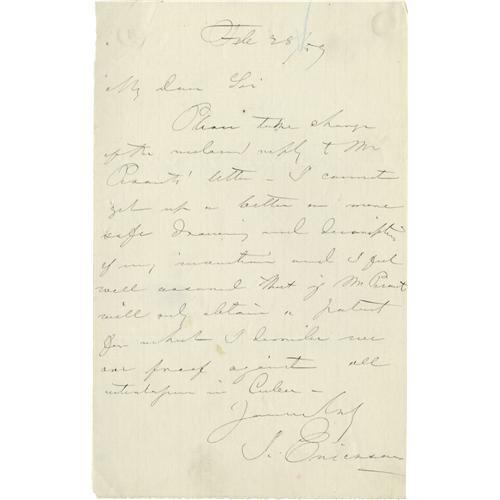 Feb 28/59
My Dear Sir
Please take charge
of the enclosed reply to Mr
letter – I cannot
get up a better or more
safe drawing and description
of my invention and I feel
well assured that if Mr
will only obtain a patent
for what I describe we
are proof against all
in Cuba –
Yours truly
J. Ericsson